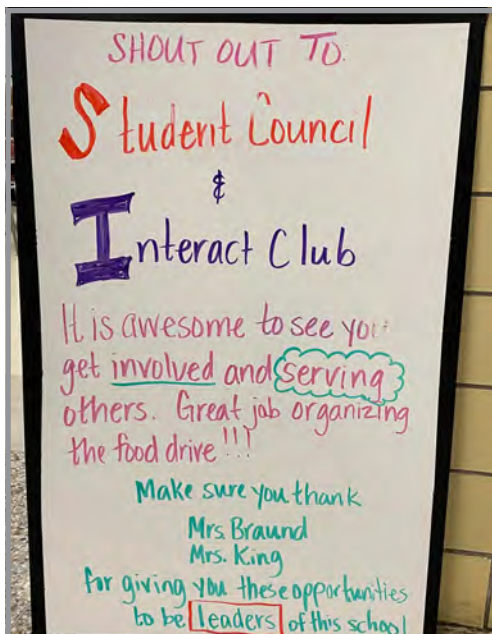 SHOUT OUT TO:
Student Council
&
Interact Club
It is awesome to see you
get involved and serving
others. Great job organizing
the food drive!!!
Make sure you thank
Mrs. Braund
Mrs. King
for giving you these opportunities
to be leaders of this school